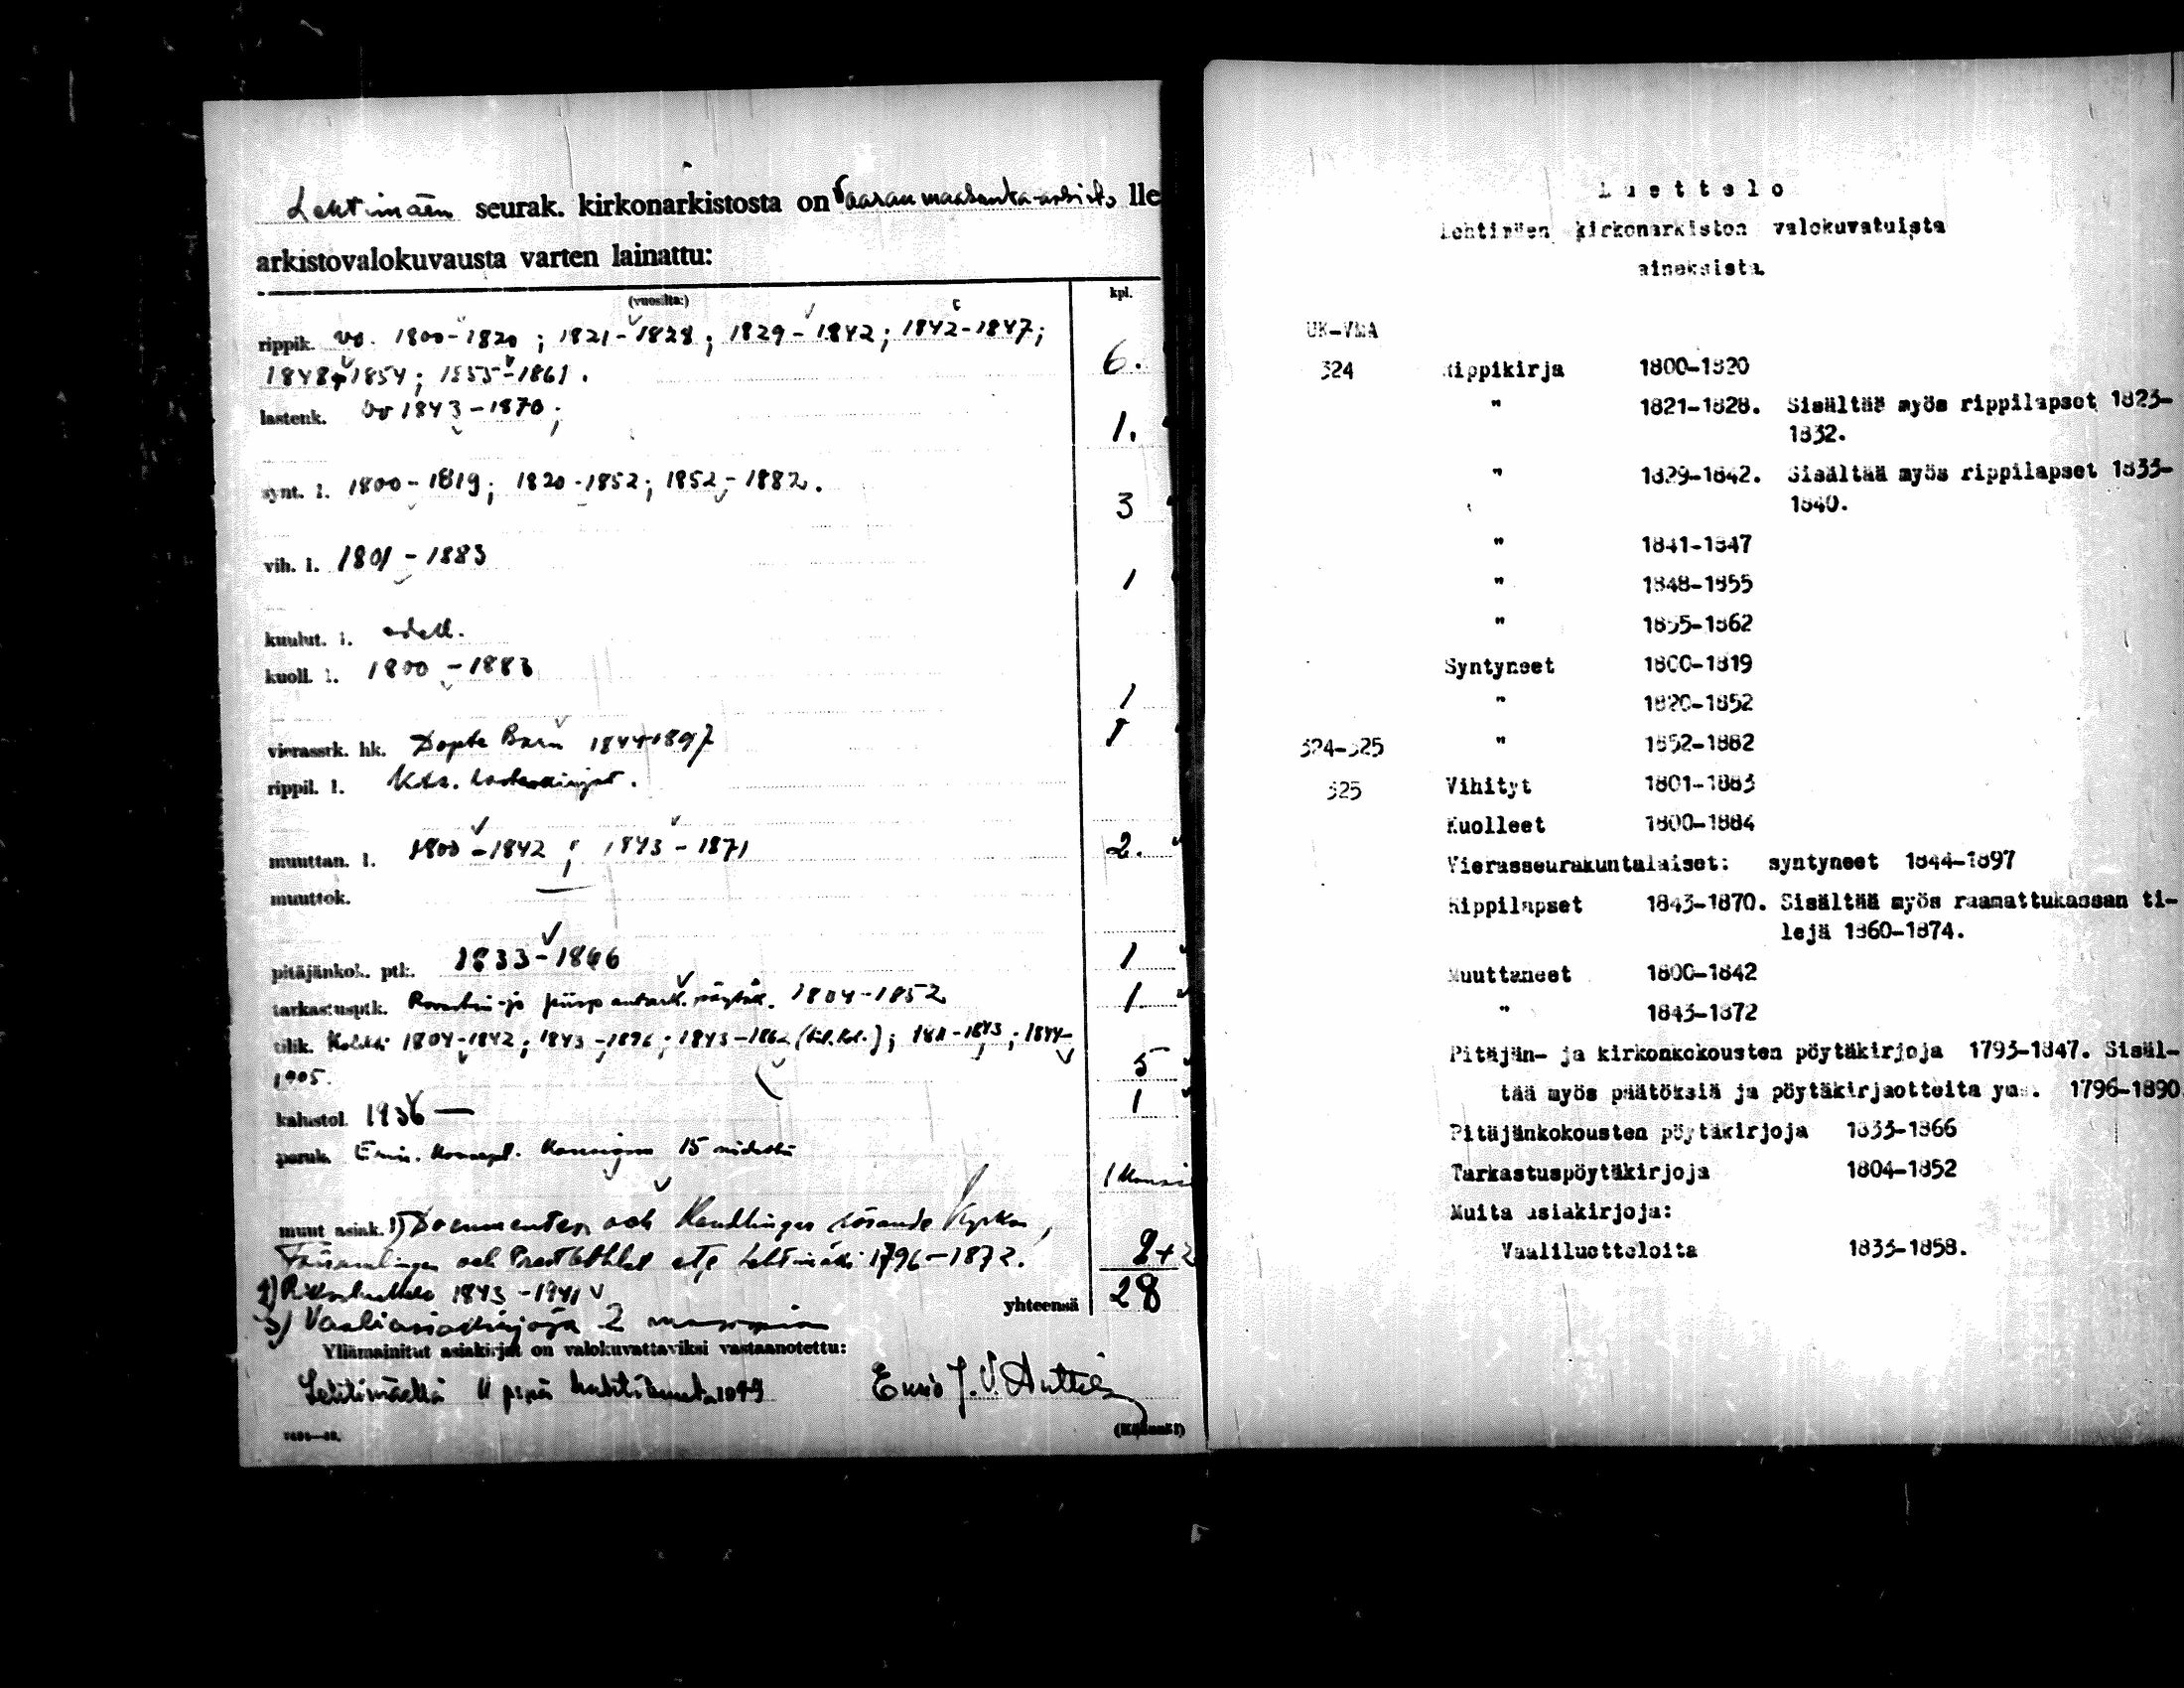 Lehtimäen seurak. kirkonarkistosta on Vaasan maakunta-arkisto lle
arkistovalokuvausta varten lainattu:
(vuosilta:) kpl.
rippik. vv. 1800-1820; 1821-1828; 1829-1842; 1842-1847;
1848-1854; 1855-1861. 6.
lastenk. vv 1843-1870; 1.
synt. l. 1800-1819; 1820-1852; 1852-1882. 3
vih. l. 1801-1883 1
kuulut. l. edell.
kuoll. l. 1800-1883 1
vierassrk. hk. Döpta Barn 1844-1897 1
rippil. l. Kts. lastenkirjat.
muuttan. l. 1800-1842; 1843-1871 2.
muuttok. —
pitäjänkok. ptk. 1833-1866 1
tarkastusptk. Rovastin- ja piispantark. pöytäk. 1804-1852 1.
tilik. 1804-1842; 1843-1896; 1843-1862; 1811-1843; 1844-
1905. 5
kalustol. 1936— 1
peruk. 15
muut asiak. 1) Documenter och Handlingar rörande Kyrkan,
Församlingen och Lehtimäki 1796-1872. 2+2
2) Rikosluettelo 1843-1941
3) Vaaliasiakirjoja 2 yhteensä 28
Yllämainitut asiakirjat on valokuvattaviksi vastaanotettu:
Lehtimäellä 11 p:nä huhtikuuta 1949
Luettelo
Lehtimäen kirkonarkiston valokuvatuista
aineksista
UK-VMA
324 Rippikirja 1800-1820
" 1821-1828. Sisältää myös rippilapset 1823-
1832.
" 1829-1842. Sisältää myös rippilapset 1833-
1840.
" 1841-1847
" 1848-1855
" 1855-1862
Syntyneet 1800-1819
" 1820-1852
324-325 " 1852-1882
325 Vihityt 1801-1883
Kuolleet 1800-1884
Vierasseurakuntalaiset: syntyneet 1844-1897
Rippilapset 1843-1870. Sisältää myös raamattukassan ti-
lejä 1860-1874.
Muuttaneet 1800-1842
" 1843-1872
Pitäjän- ja kirkonkokousten pöytäkirjoja 1793-1847. Sisäl-
tää myös päätöksiä ja pöytäkirjaotteita ym. 1796-1890
Pitäjänkokousten pöytäkirjoja 1833-1866
Tarkastuspöytäkirjoja 1804-1852
Muita asiakirjoja:
Vaaliluetteloita 1833-1858.